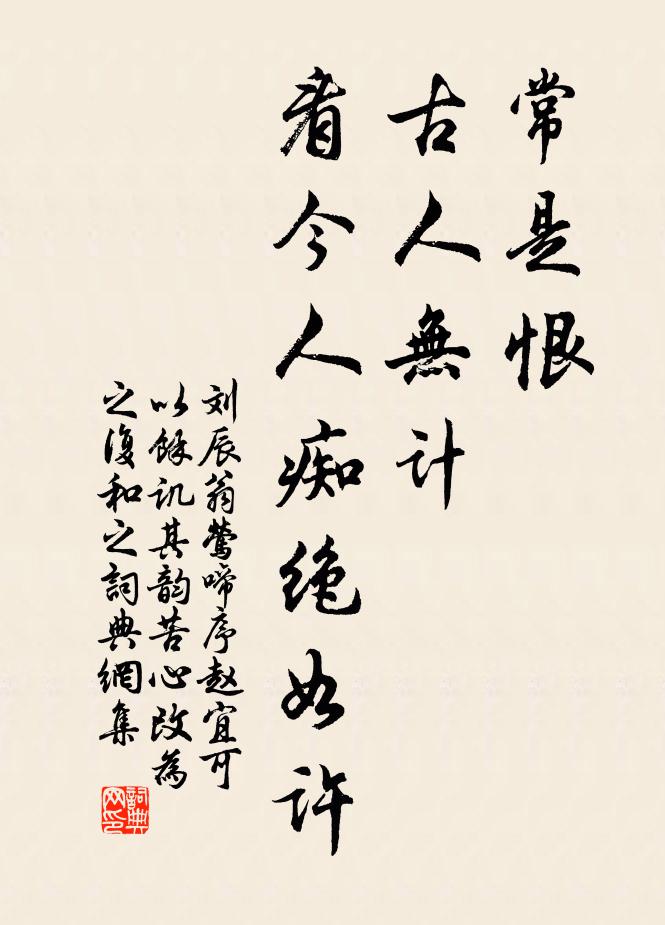 常是恨
古人無計
看今人痴絶如许
刘辰翁鶯啼序赵宜可
以餘訊其韵苦心改為
之復和之詞典網集
詞典
网印